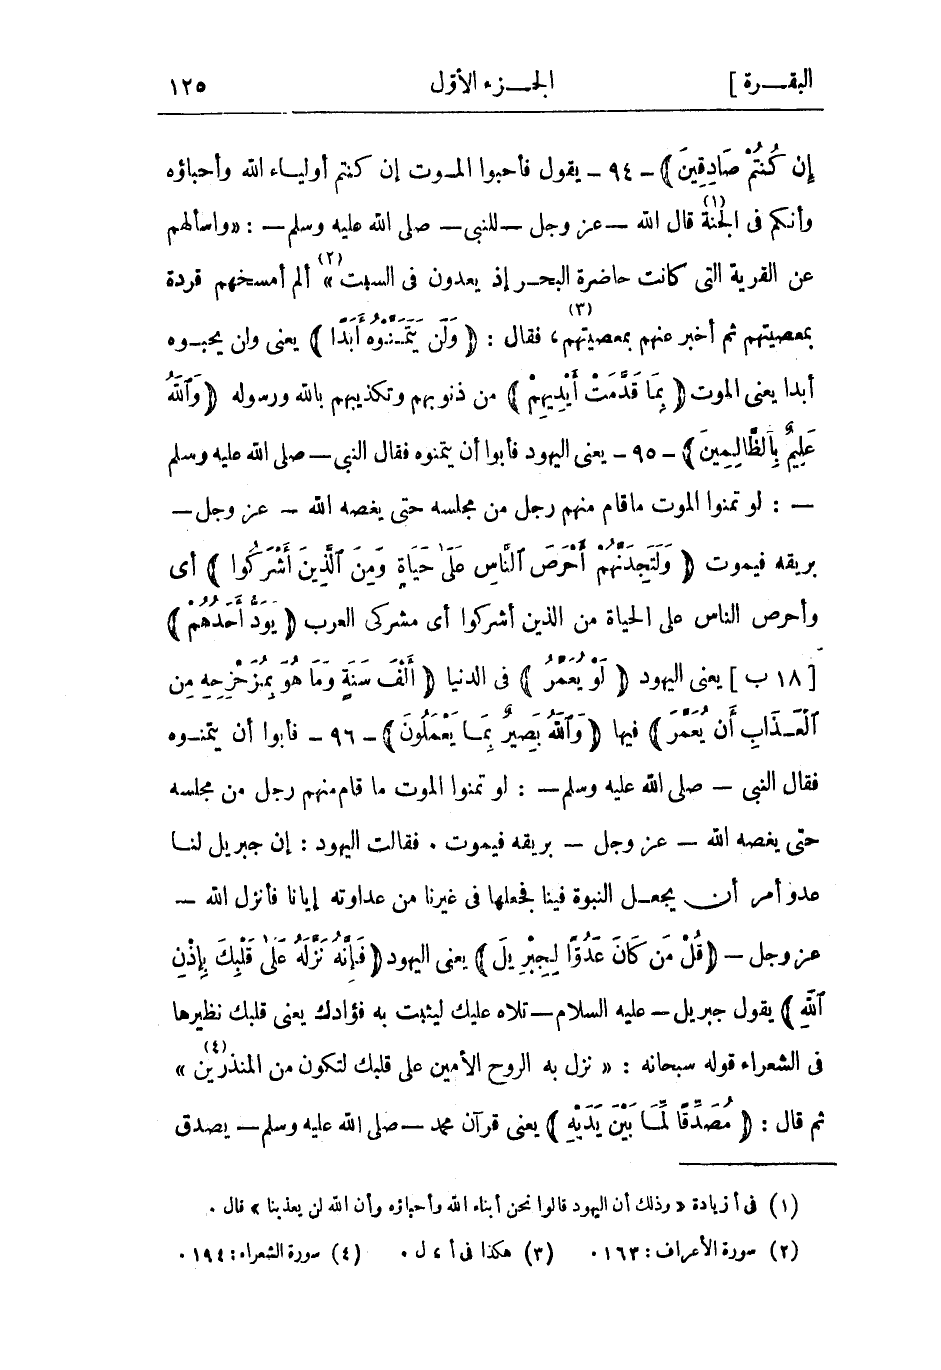 البقـــرة ]
الجـــزء الأوّل
١٢٥
إِن كُنتُمْ صَادِقِينَ ﴾ ـ ٩٤ ـ يقول فأحبوا المـوت إن كنتم أوليـاء الله وأحباؤه
وأنكم فى الجنة (١) قال الله — عز وجل — للنبى — صلى الله عليه وسلم — : «واسألهم
عن القرية التى كانت حاضرة البحـر إذ يعدون فى السبت» (٢) ألم أمسخهم قردة
بمعصيتهم ثم أخبر عنهم بمعصيتهم (٣) ، فقال : ﴿ وَلَن يَتَمَنَّوْهُ أَبَدًا ﴾ يعنى ولن يحبـوه
أبدا يعنى الموت ﴿ بِمَا قَدَّمَتْ أَيْدِيهِمْ ﴾ من ذنوبهم وتكذيبهم بالله ورسوله ﴿ وَٱللَّهُ
عَلِيمٌ بِٱلظَّالِمِينَ ﴾ ـ ٩٥ ـ يعنى اليهود فأبوا أن يتمنوه فقال النبى — صلى الله عليه وسلم
— : لو تمنوا الموت ماقام منهم رجل من مجلسه حتى يغصه الله — عز وجل —
بريقه فيموت ﴿ وَلَتَجِدَنَّهُمْ أَحْرَصَ ٱلنَّاسِ عَلَىٰ حَيَاةٍ وَمِنَ ٱلَّذِينَ أَشْرَكُوا ﴾ أى
وأحرص الناس على الحياة من الذين أشركوا أى مشركى العرب ﴿ يَوَدُّ أَحَدُهُمْ ﴾
[ ١٨ ب ] يعنى اليهود ﴿ لَوْ يُعَمَّرُ ﴾ فى الدنيا ﴿ أَلْفَ سَنَةٍ وَمَا هُوَ بِمُزَحْزِحِهِ مِن
ٱلْعَـذَابِ أَن يُعَمَّرَ ﴾ فيها ﴿ وَٱللَّهُ بَصِيرٌ بِمَـا يَعْمَلُونَ ﴾ ـ ٩٦ ـ فأبوا أن يتمنـوه
فقال النبى — صلى الله عليه وسلم — : لو تمنوا الموت ما قام منهم رجل من مجلسه
حتى يغصه الله — عز وجل — بريقه فيموت . فقالت اليهود : إن جبريل لنـا
عدو أمر أن يجعـل النبوة فينا فجعلها فى غيرنا من عداوته إيانا فأنزل الله —
عز وجل — ﴿ قُلْ مَن كَانَ عَدُوًّا لِجِبْرِيلَ ﴾ يعنى اليهود ﴿ فَإِنَّهُ نَزَّلَهُ عَلَىٰ قَلْبِكَ بِإِذْنِ
ٱللَّهِ ﴾ يقول جبريل — عليه السلام — تلاه عليك ليثبت به فؤادك يعنى قلبك نظيرها
فى الشعراء قوله سبحانه : « نزل به الروح الأمين على قلبك لتكون من المنذرين » (٤)
ثم قال : ﴿ مُصَدِّقًا لِّمَـا بَيْنَ يَدَيْهِ ﴾ يعنى قرآن محمد — صلى الله عليه وسلم — يصدق
(١) فى أ زيادة « وذلك أن اليهود قالوا نحن أبناء الله وأحباؤه وأن الله لن يعذبنا » قال .
(٢) سورة الأعراف : ١٦٣ . (٣) هكذا فى أ ، ل . (٤) سورة الشعراء : ١٩٤ .